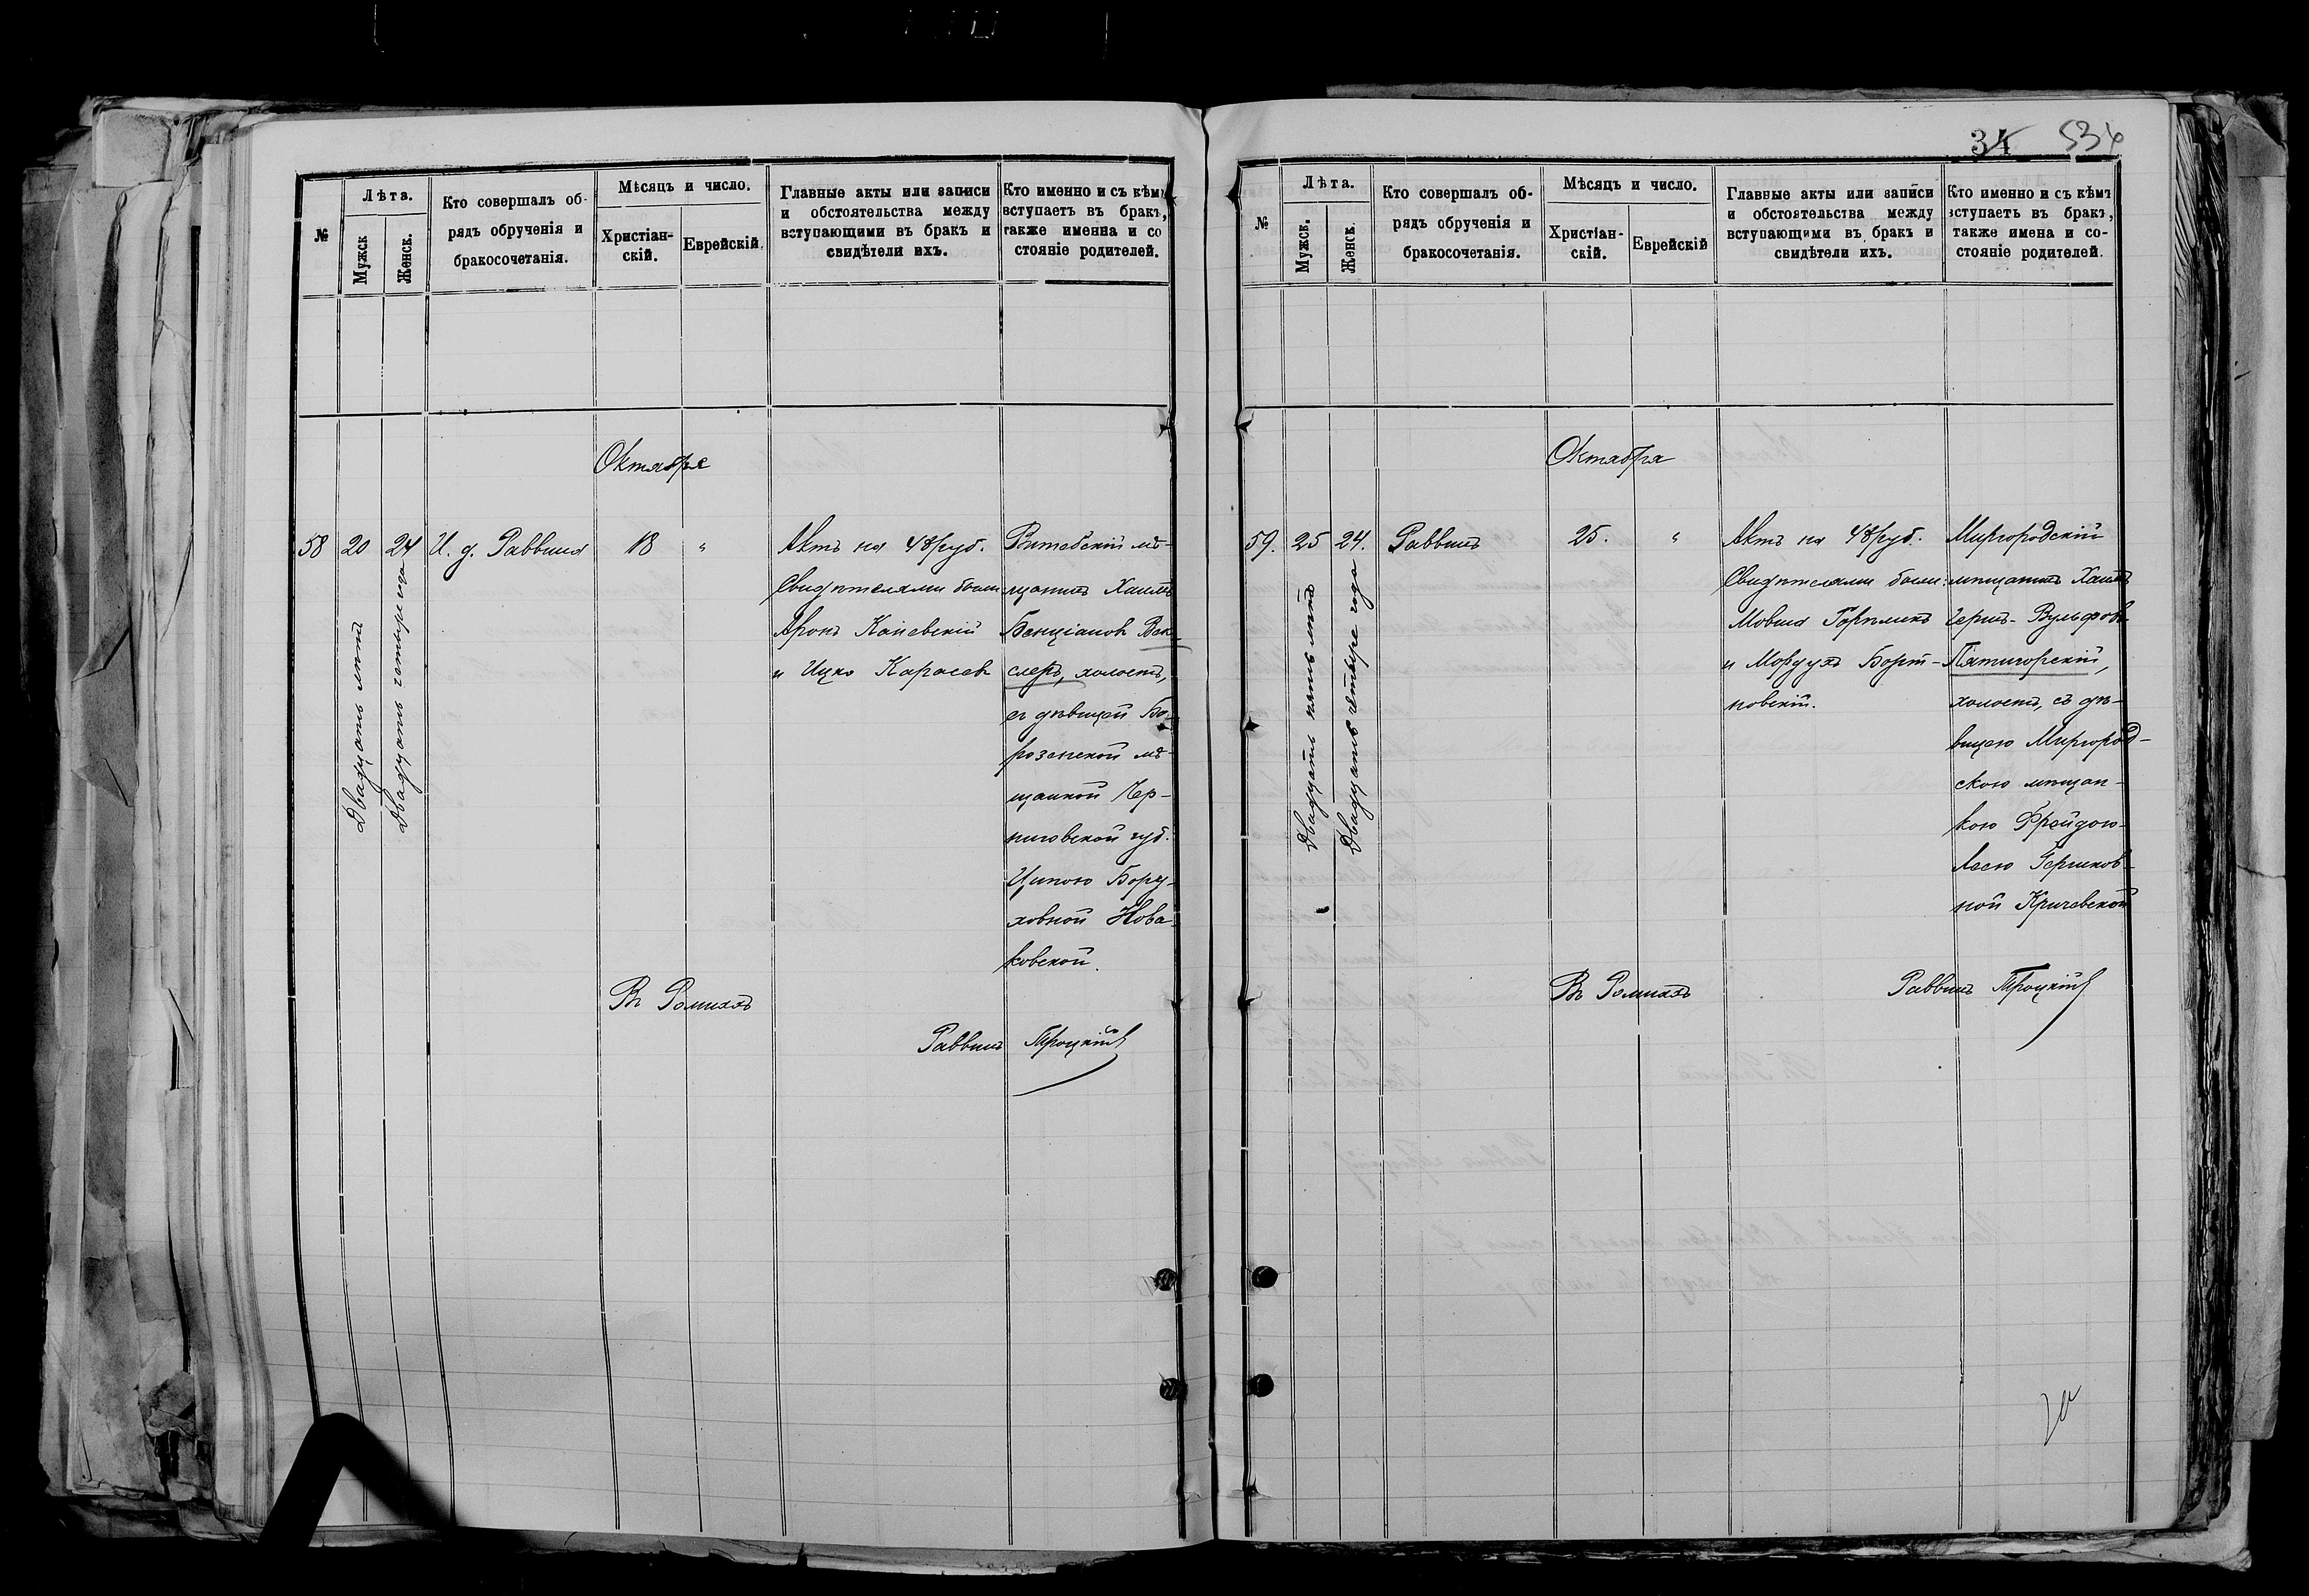 №
Лѣта.
Мужск
Женск.
Кто совершалъ об-
рядъ обрученія и
бракосочетанія.
Мѣсяцъ и число.
Христіан-
скій.
Еврейскій.
Главные акты или записи
и обстоятельства между
вступающими въ бракъ и
свидѣтели ихъ.
Кто именно и съ кѣмъ
вступаетъ въ бракъ,
также именна и со
стояніе родителей.
Октября
58
20
Двадцать лѣтъ
24
Двадцать четыре года
И. д. Раввина
18
"
Актъ на 48 руб.
Свидѣтелями были:
Аронъ Каневскій
и Ицко Карасев
Витебскій мѣ-
щанинъ Хаимъ
Бенціанов Век-
слеръ, холостъ,
съ дѣвицей Бо-
розенской мѣ-
щанкой Чер-
ниговской губ.
Ципою Бору-
ховной Нова-
ковской.
Въ Ромнахъ
Раввинъ Троцкій
34 534
№
Лѣта.
Мужск.
Женск.
Кто совершалъ об-
рядъ обрученія и
бракосочетанія.
Мѣсяцъ и число.
Христіан-
скій.
Еврейскій
Главные акты или записи
и обстоятельства между
вступающими въ бракъ и
свидѣтели ихъ.
Кто именно и съ кѣмъ
вступаетъ въ бракъ,
также имена и со-
стояніе родителей.
Октября
59.
25
Двадцать пять лѣтъ
24.
Двадцать четыре года
Раввинъ
25.
"
Актъ на 48 руб.
Свидѣтелями были:
Мовша
и Мордухъ Борт-
новскій.
Миргородскій
мѣщанинъ Хаимъ
Гершъ-Вульфов
Пятигорскій,
холостъ, съ дѣ-
вицею Миргород-
скою мѣщан-
кою Фрейдою-
Асею Гершков-
ной Кричевской
Въ Ромнахъ
Раввинъ Троцкій